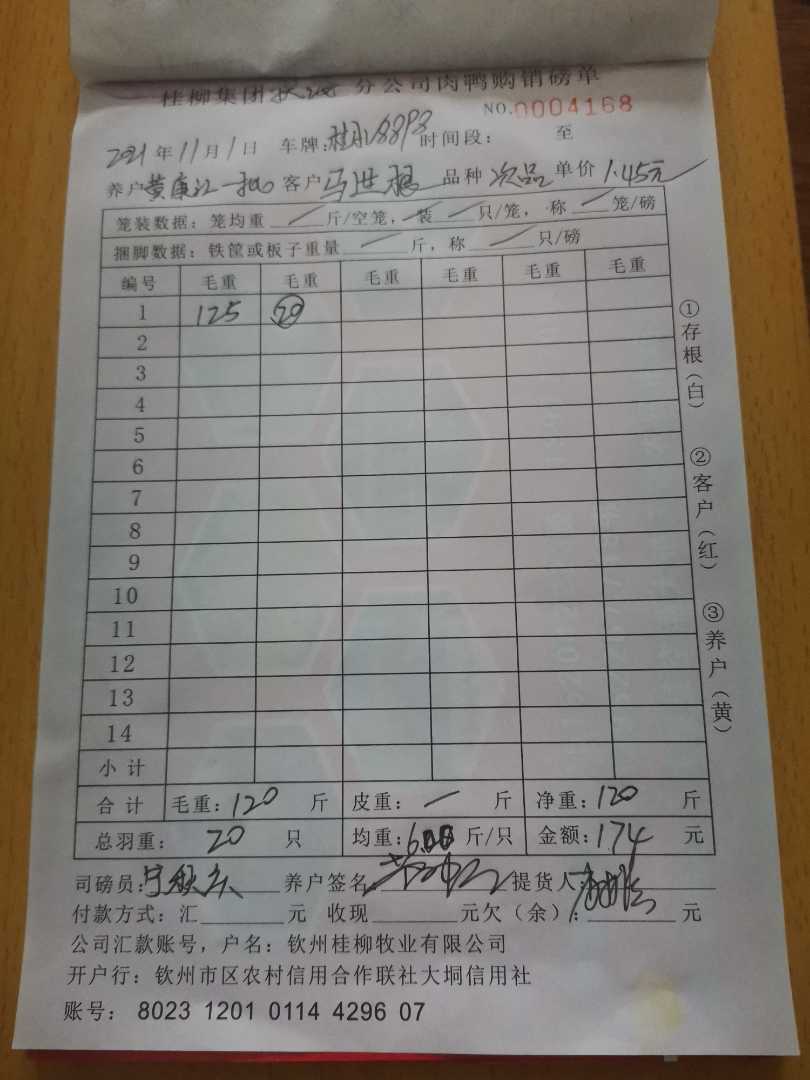 桂柳集团 分公司肉鸭购销磅单
NO.0004168
2021年11月1日 车牌: 时间段: 至
养户黄康江一批 客户马世稳 品种次品 单价1.45元
笼装数据:笼均重 斤/空笼,装 只/笼,称 笼/磅
捆脚数据:铁筐或板子重量 斤,称 只/磅
编号 毛重 毛重 毛重 毛重 毛重 毛重
1 125 20
2
3
4
5
6
7
8
9
10
11
12
13
14
小计
合计 毛重:120 斤 皮重: 斤 净重:120 斤
总羽重: 20 只 均重:6.00 斤/只 金额:174 元
司磅员: 养户签名: 提货人:
付款方式:汇 元 收现 元欠(余): 元
公司汇款账号,户名:钦州桂柳牧业有限公司
开户行:钦州市区农村信用合作联社大垌信用社
账号: 8023 1201 0114 4296 07
①存根(白)
②客户(红)
③养户(黄)